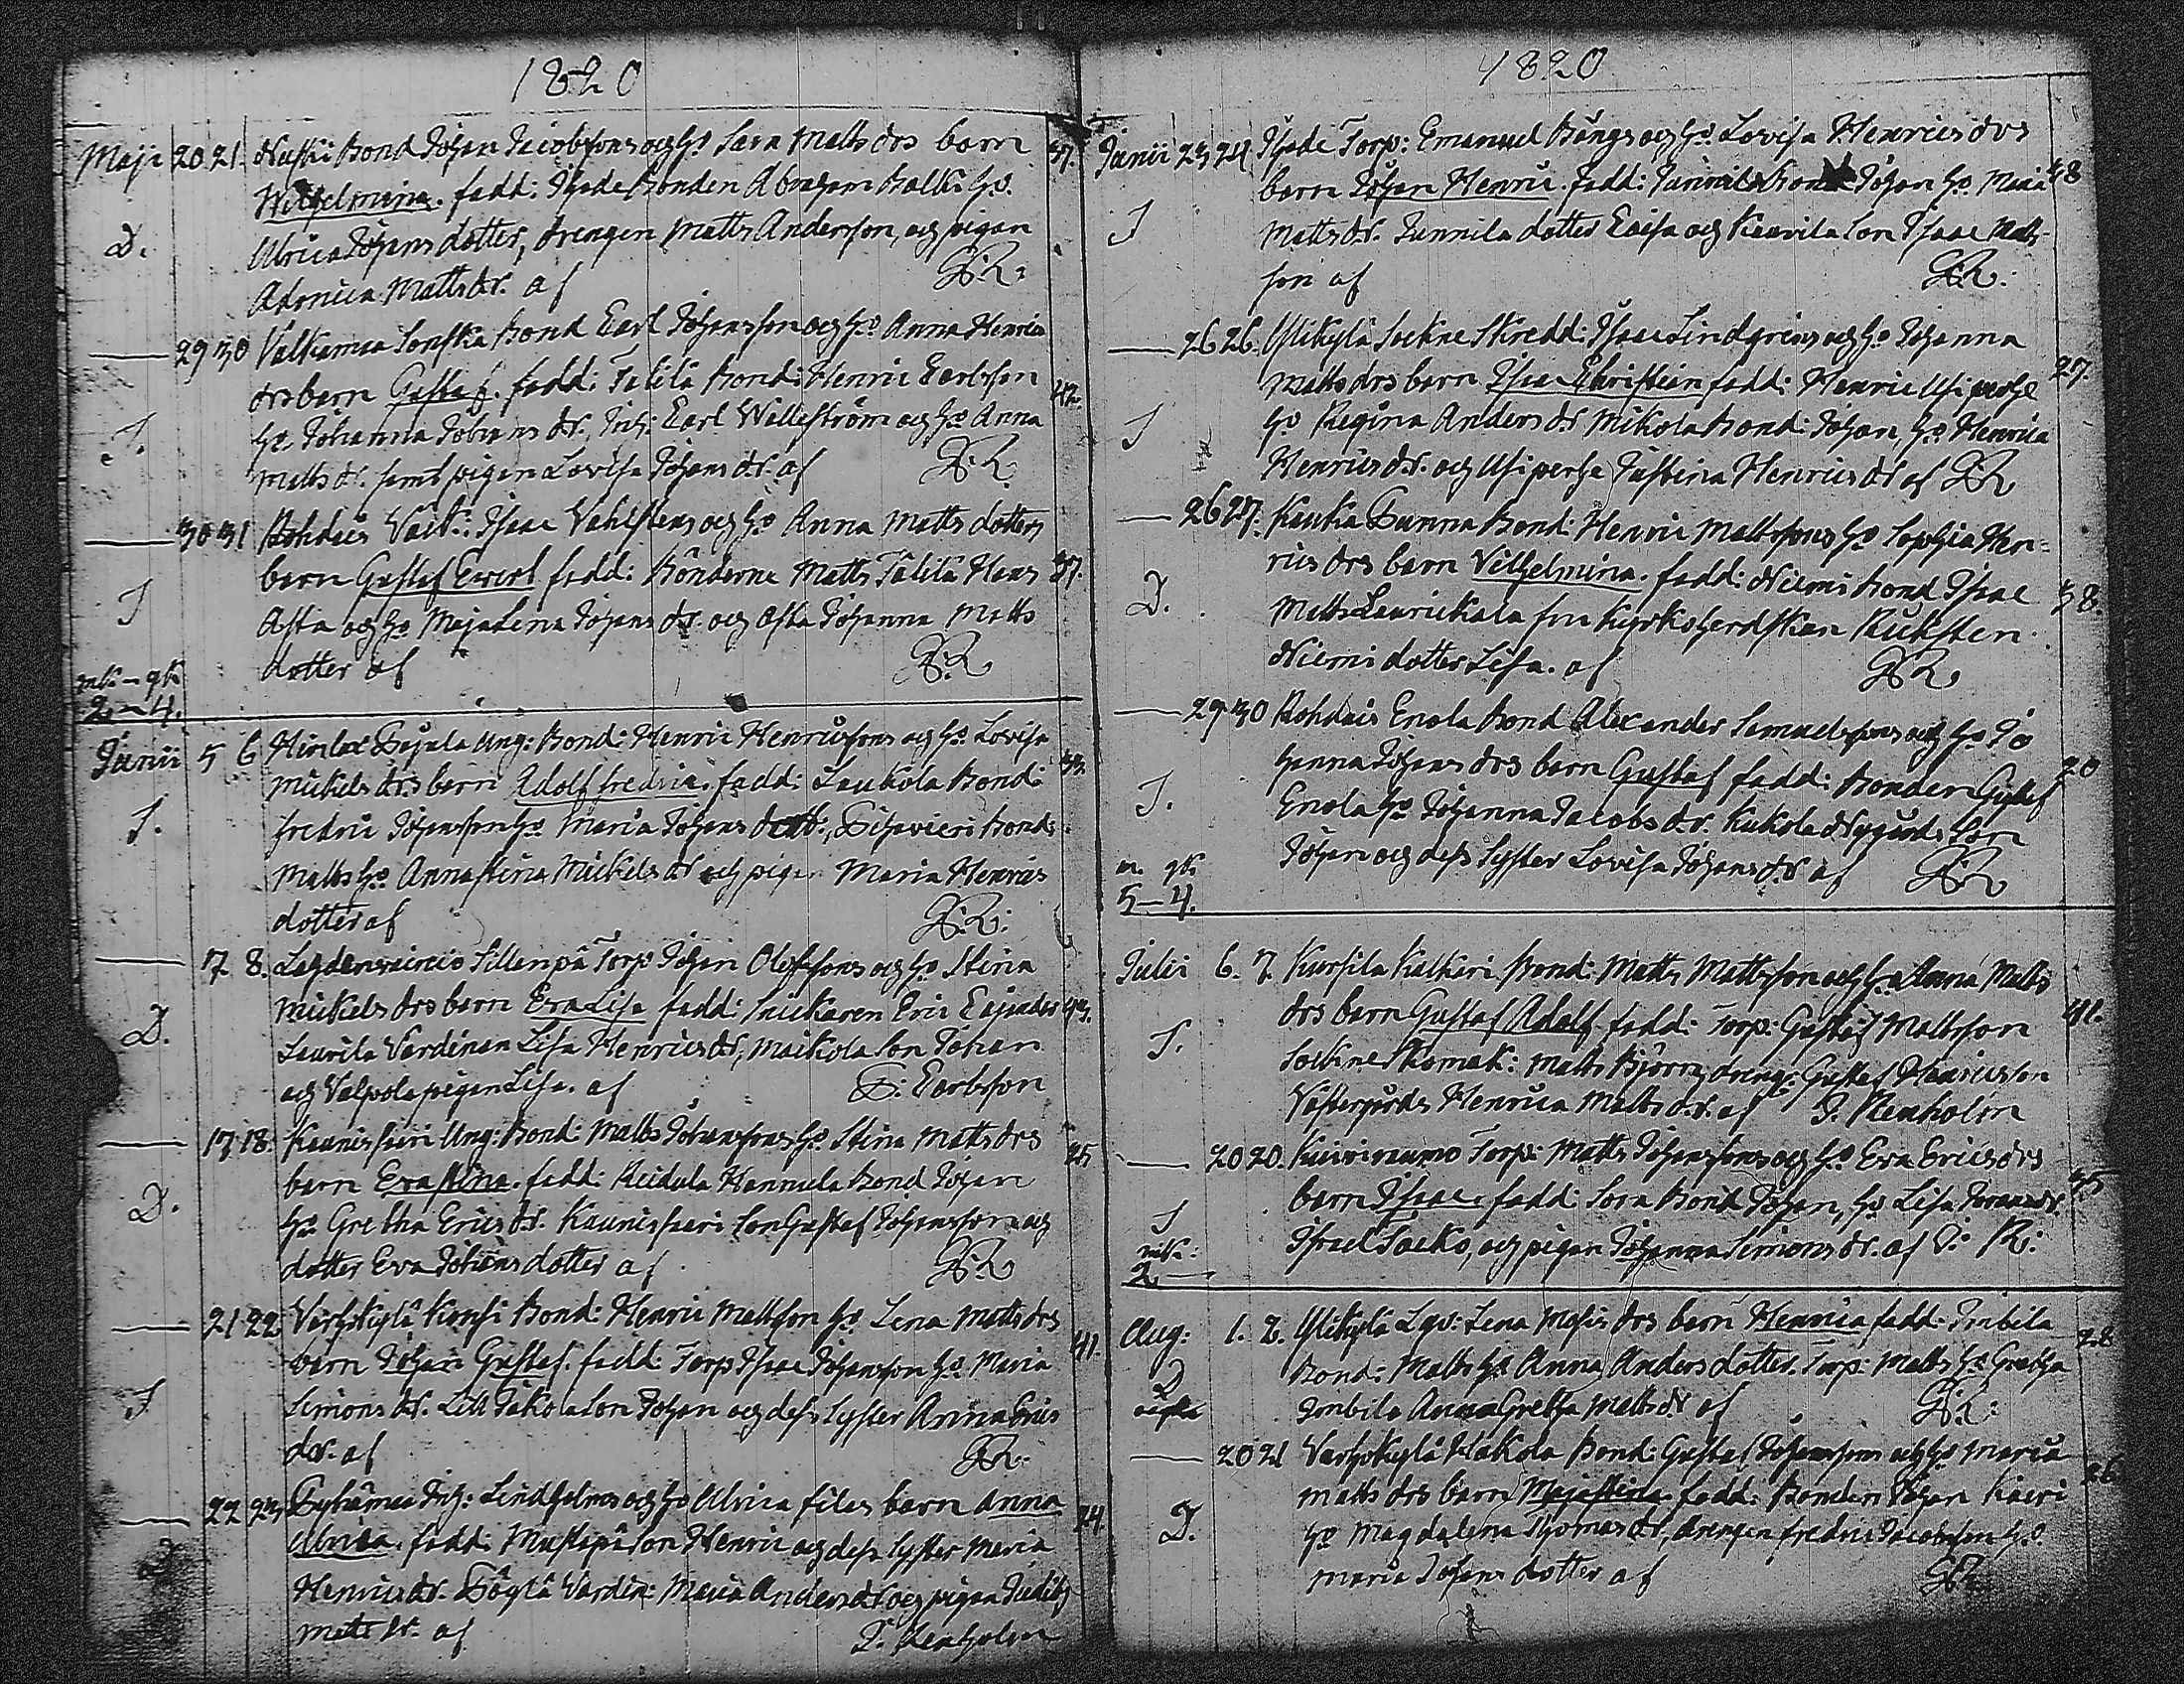 1820
Maji 20 21. Nuski Bond Johan Jacobssons och Ho Sara Matts drs barn 37.
Wilhelmina. fadd: Thade Bonden Abraham Balk. Ho.
D. Ulrica Johans dotter, drengen Matts Andersson, och pigan
Matts dr. af H:R:
— 29 30 Valkamaa Bond Carl Johansson och Ho Anna Henrics
drs barn Gustaf. fadd: Talila Bond: Henric Carlsson 42.
S. Ho. Johanna Johans dr., Inh: Carl Wallström och Ho Anna
Matts dr. samt pigan Lovisa Johans dr. af H:R
— 30 31 Rohdais Isaac Vahlstens och Ho Anna Matts dotters
barn Gustaf fadd: Bönderne Matts Talila Hans 37.
S Asta och Ho Maja Lena Johans dr. och Asta Johanna Matts
dotter af H:R
mk – qk
2 – 4.
Junii 5 6 Ung: Bond: Henric Henricssons och Ho Lovisa
Mickels drs barn Adolf fredric. fadd: Laukola Bond: 33.
S. fredric Johansson Ho Maria Johans dott:, Bond:
Matts Ho. Anna Stina Mickels dr och pigan Maria Henrics
dotter af H:R:
— 7 8. Sillanpä Torp: Johan Olofssons och Ho Stina
Mickels drs barn Eva Lisa fadd: Snickaren Eric
D. Laurila Vardinan Lisa Henrics dr, Maikola Son Johan
och Valpola pigan Lisa. af Carlsson
— 17 18. Kaunisperi Ung: Bond: Matts Johanssons Ho. Stina Matts drs 25
barn Eva Stina. fadd: Reidula Hannula Bond Johan
D. Ho. Gretha Erics dr. Kaunisperi Son Gustaf Johansson och
dotter Eva Johans dotter af H:R
— 21 22 Varhokylä Bond: Henric Mattsson Ho. Lena Matts drs
barn Johan Gustaf. fadd: Torp Isaac Johansson Ho. Maria 41.
S Simons dr. Lill Jakola Son Johan och dess Syster Anna Erics
dr. af H:R.
— 22 23 Inh: Lindholms och Ho Ulrica files barn Anna 24.
Ulrica. fadd: Mustapä Son Henric och dess Syster Maria
Henrics dr. Värdin: Maria Anders dr och pigan Judith
Matts dr. af J. Renholm
1820
Junii 23 24 Thade Torp: Emanuel Bångs och Ho. Lovisa Henrics drs
barn Johan Henric. fadd: Junnila Bond Johan Ho. Maria 48
S Matts dr. Junnila dotter Caisa och Kaurila Son Isaac Matts-
son af H:R:
— 26 26. Ylikylä Sockne Skredd: Isaac Lindgrens och Ho Johanna
Matts drs barn Isaac Christian fadd: Henric 27.
S Ho Regina Anders dr Mikola Bond: Johan, Ho. Henrica
Henrics dr. och Justina Henrics dr af H:R
— 26 27. Kauka Bond: Henric Mattssons Ho Sophia Hen-
rics drs barn Vilhelmina. fadd: Niemi Bond Isaac
D. Matts Laurickala fru Kyrkoherdskan 38.
Niemi dotter Lisa. af H:R
— 29 30 Rohdais Enola Bond Alexander Samuelssons och Ho Jo
hanna Johans drs barn Gustaf fadd: Bonden Gustaf 20
S. Enola Ho Johanna Jacobs dr. Kukola Nygårds Son
Johan och dess Syster Lovisa Johans dr af H:R
m. qk
5 – 4.
Julii 6. 7. Kursila Kalkari Bond: Matts Mattsson och Ho Anna Matts
drs barn Gustaf Adolf fadd: Torp: Gustaf Mattsson 41.
S. Sockne Skomak: Matts Björn, dreng: Gustaf Henricsson
Västergårds Henrica Matts dr. af J. Renholm
— 20 20. Kuiviraumo Torp: Matts Johanssons och Ho. Eva Erics drs
barn Isaac. fadd: Sora Bond Johan, Ho. Lisa 35
S Israel och pigan Johanna Simons dr. af J: R:
mk:
2 —
Aug: 1. 2. Ylikylä Lena drs barn Henrica fadd: Imbila 22
D Bond: Matts Ho. Anna Anders dotter. Torp: Matts Ho Gretha
oäkta Imbila Anna Gretha Matts dr af H:R:
— 20 21 Varhokylä Hakola Bond: Gustaf Johansson och Ho Maria
Matts drs barn Maja Stina. fadd: Bonden Johan 26
D. Ho Magdalena Thomas dr, drengen fredric Jacobsson Ho.
Maria Johans dotter af H:R.